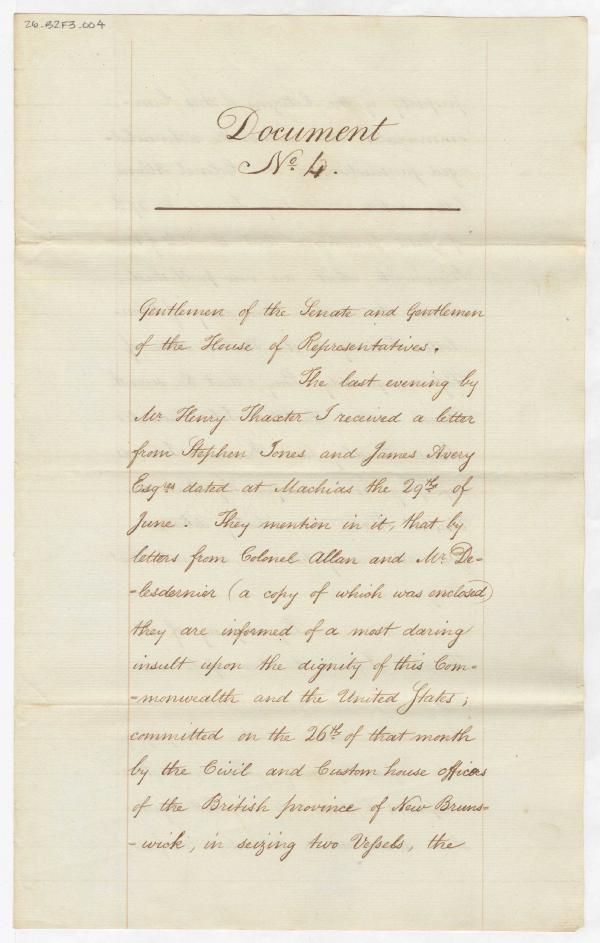 26-B2F3-004
Document
No. 4.
Gentlemen of the Senate and Gentlemen
of the House of Representatives.
The last evening by
Mr. Henry Thaxter I received a letter
from Stephen Jones and James Avery
Esqrs dated at Machias the 29th of
June. They mention in it, that by
letters from Colonel Allan and Mr. De-
-lesdernier (a copy of which was enclosed)
they are informed of a most daring
insult upon the dignity of this Com-
-monwealth and the United States;
committed on the 26th of that month
by the Civil and Custom house officers
of the British province of New Bruns-
-wick, in seizing two Vessels, the